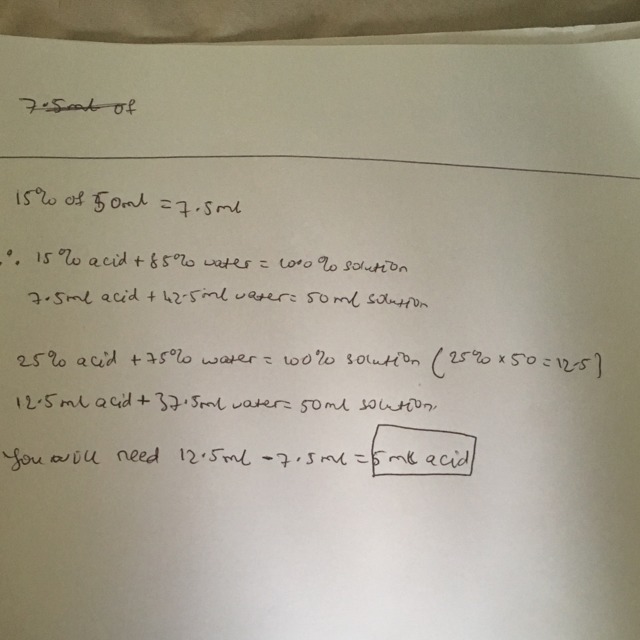 7.5ml of
15% of 50ml = 7.5ml
∴ 15% acid + 85% water = 100% solution
7.5ml acid + 42.5ml water = 50ml solution
25% acid + 75% water = 100% solution (25% x 50 = 12.5)
12.5ml acid + 37.5ml water = 50ml solution.
You will need 12.5ml - 7.5ml = 5ml acid